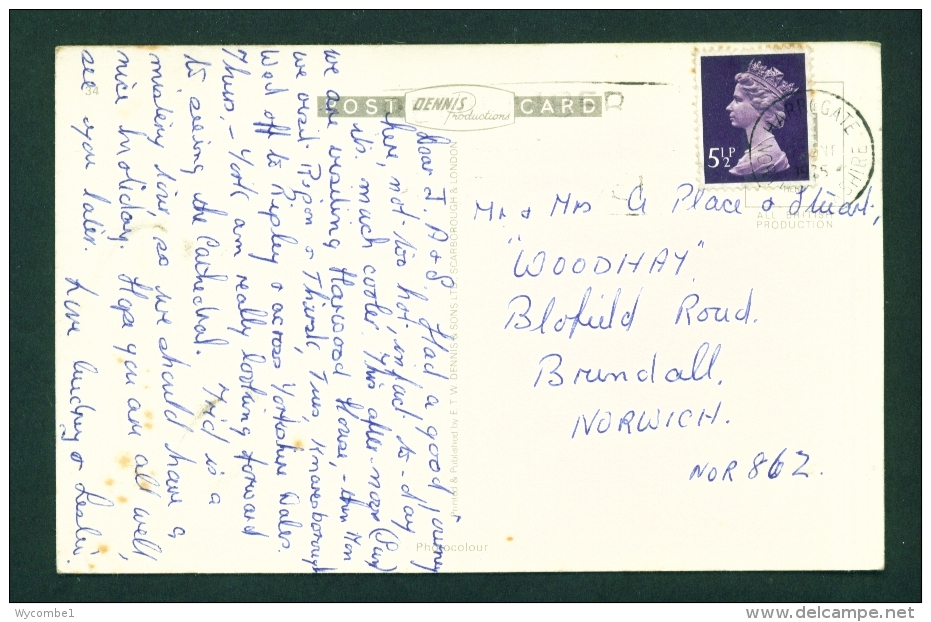 34
POST CARD
DENNIS
Productions
Dear J. A & S. Had a good journey
here, not too hot, infact to-day
its much cooler. This after-noon (Sun)
we are visiting Harwood House, – then Mon
we visit Ripon & Thirsk, Tues, Knaresborough
Wed off to Ripley & across Yorkshire Dales.
Thurs, – York am really looking forward
to seeing the Cathedral. Frid is a
mistery tour, so we should have a
nice holiday. Hope you are all well,
see you later. Love Audrey & Leslie.
Printed & Published by E. T. W. DENNIS & SONS LTD., SCARBOROUGH & LONDON
Photocolour
5½P
HARROGATE
ALL BRITISH
PRODUCTION
Mr & Mrs G Place & Stuart,
"WOODHAY".
Blofield Road.
Brundall.
NORWICH.
NOR 86Z.
Wycombe1
delcampe.net